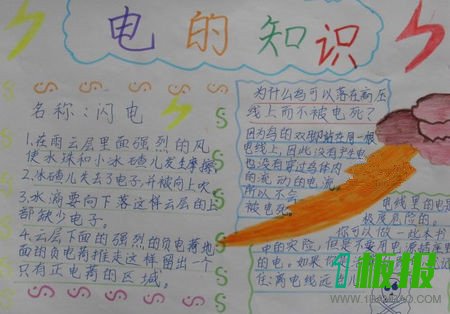 电的知识
名称:闪电
1.在雨云层里面强烈的风
使水珠和小冰碴儿发生摩擦
2.冰碴儿失去了电子,并被向上吹
3.水滴要向下落这样云层的上
都缺少电子。
4.云层下面的强烈的负电荷地
面的负电荷推走这样留出一个
只有正电荷的区域。
为什么鸟可以落在高压
线上而不被电死?
因为鸟的双脚站在同一根
电线上,因此没有产生电
也没有穿过鸟体内
的流动的电流
所以不会
被电死。
电线里的电是
极度危险的。
你可以做一些本书
中的实验,但是不要用电源插座
的电。如果你
住:离电线远点儿
1板报
www.1banbao.com